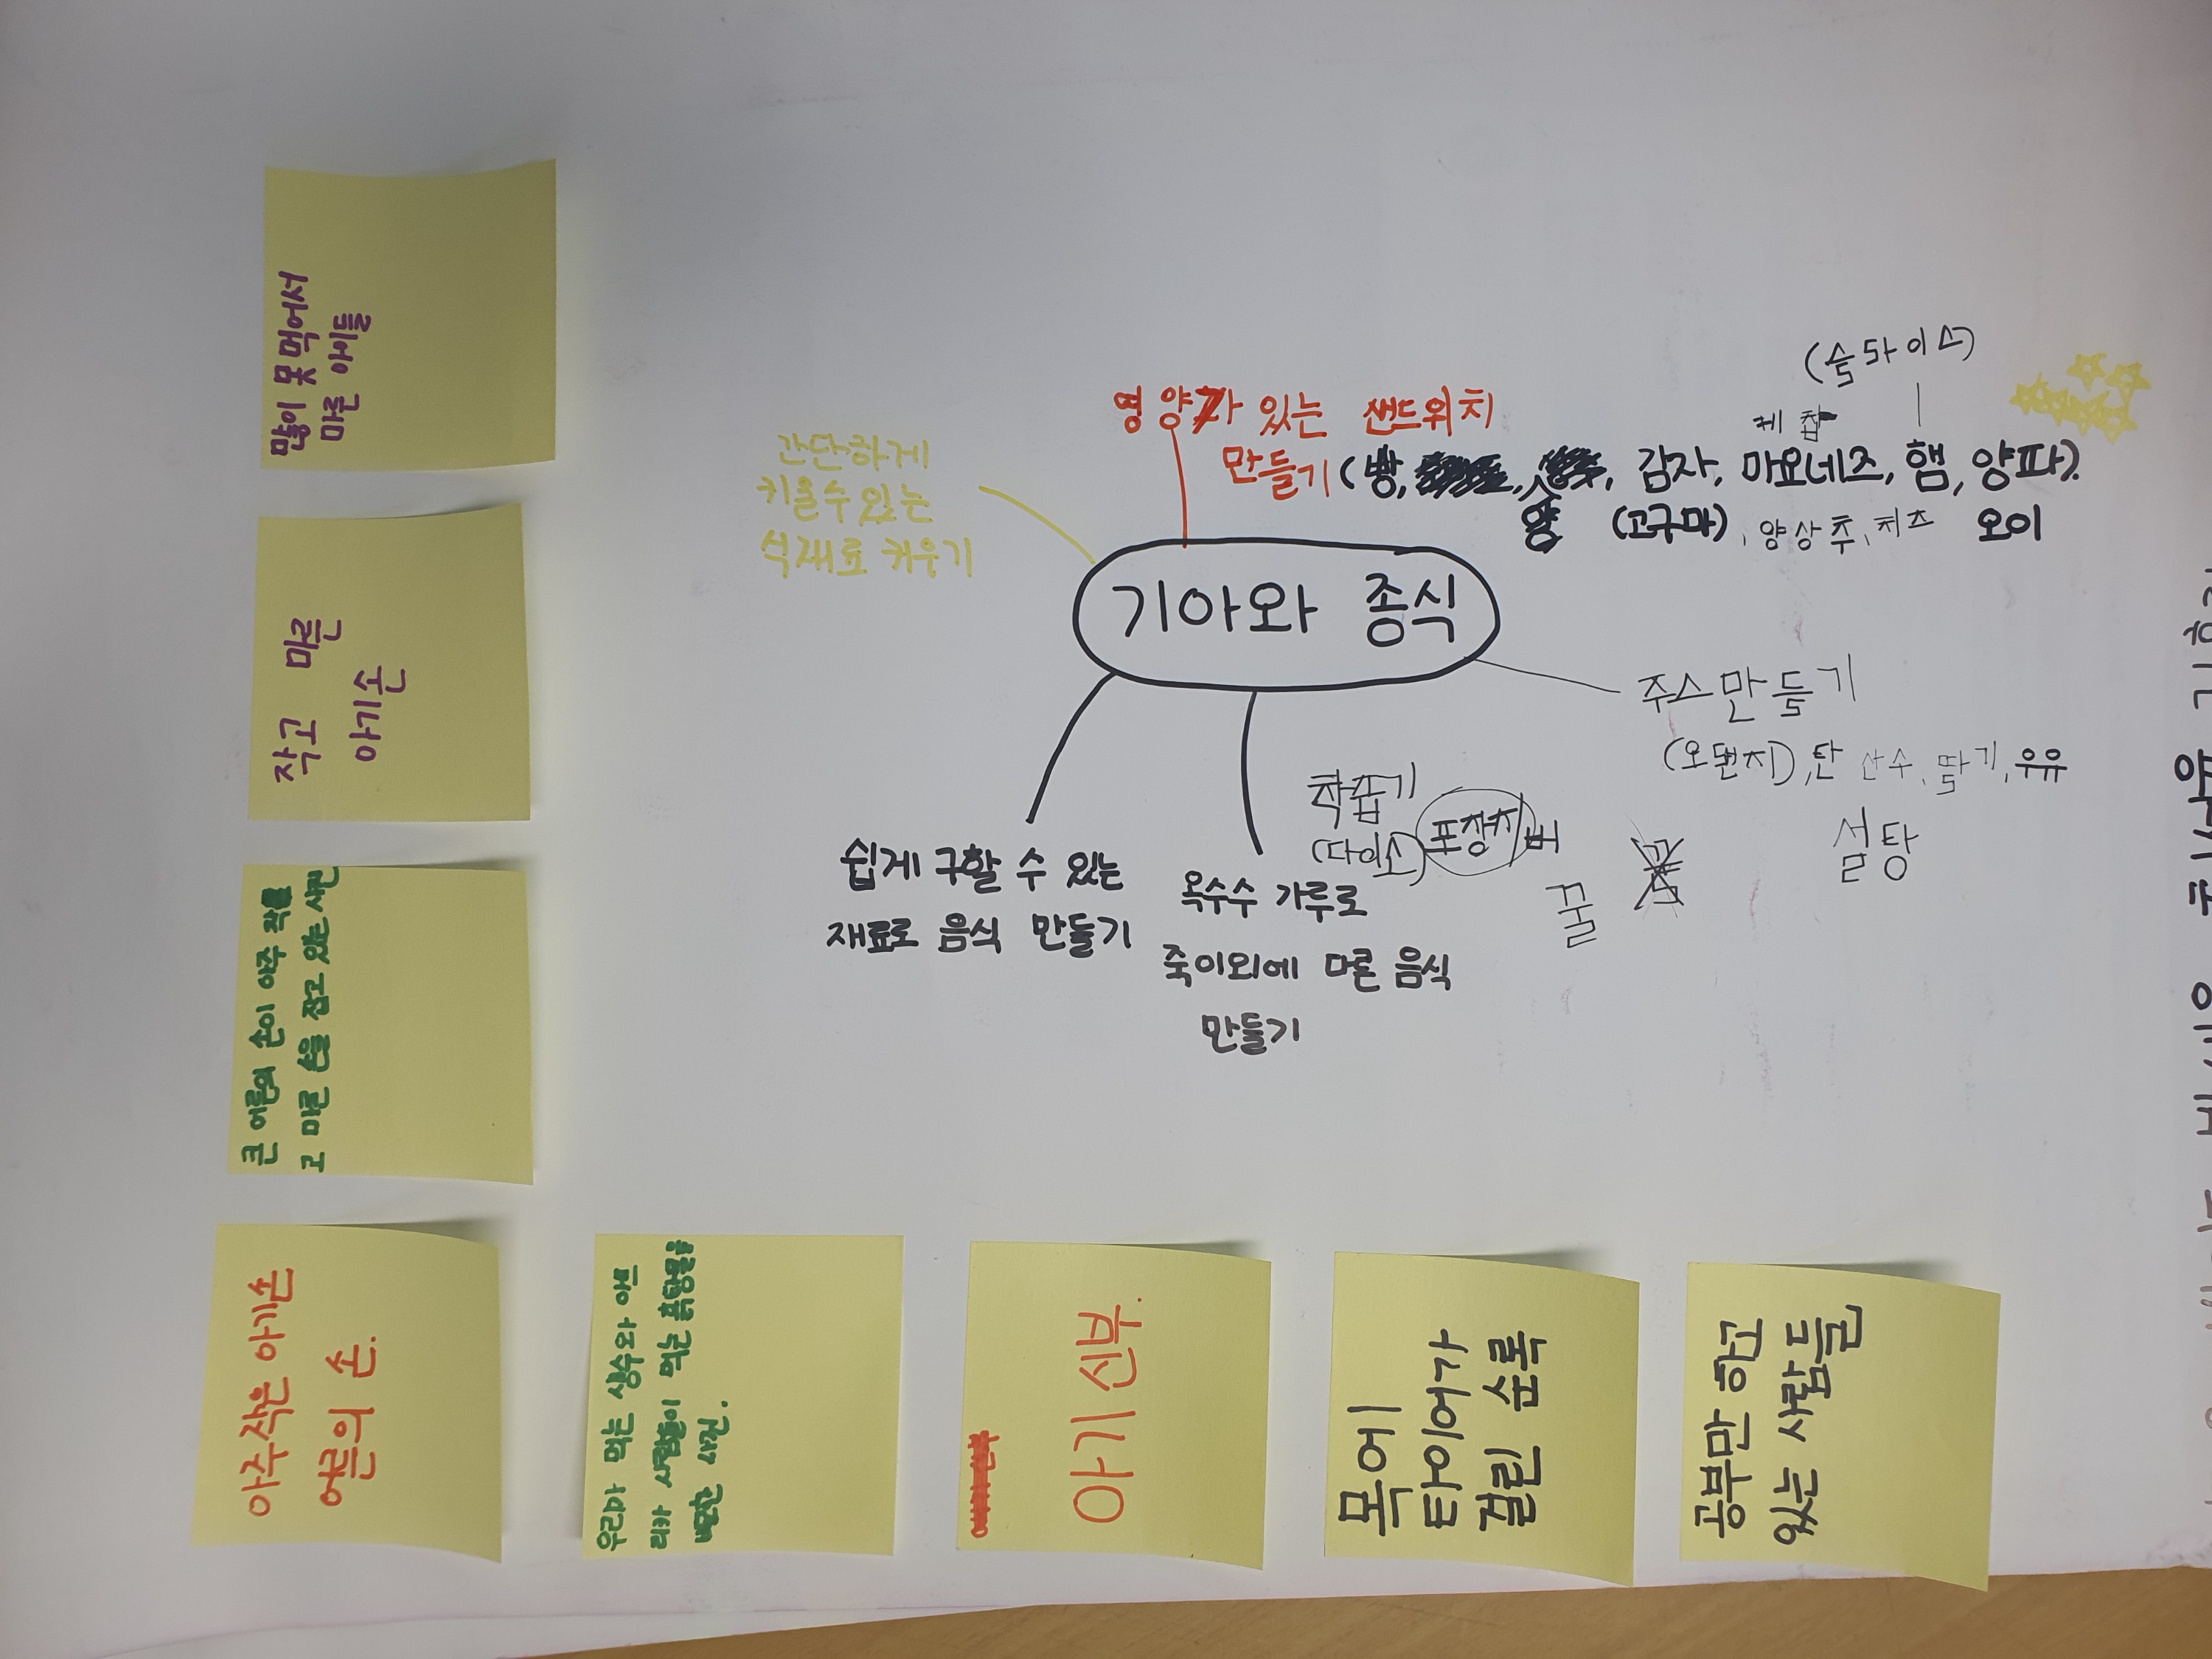 많이 못 먹어서
마른 아이들
작고 마른
아기손
큰 어른의 손이 아주 작
고 마른 손을 잡고 있는 사진
아주작은 아기손
어른의 손.
우리가 먹는 옥수수와 아프
리카 사람들이 먹는 흙탕물을
배교한 사진.
아기신부.
목에
타이어가
걸린 순록
공부만 하고
있는 사람들
간단하게
키울수있는
식재료 키우기
영양가 있는 샌드위치
만들기(빵, 감자, 마요네즈, 햄, 양파).
(슬라이스)
케찹
(고구마), 양상추, 치즈 오이
기아와 종식
주스만들기
(오렌지), 탄산수, 딸기, 우유
설탕
착즙기
(다이소)
포장지
꿀
쉽게 구할 수 있는
재료로 음식 만들기
옥수수 가루로
죽이외에 다른 음식
만들기